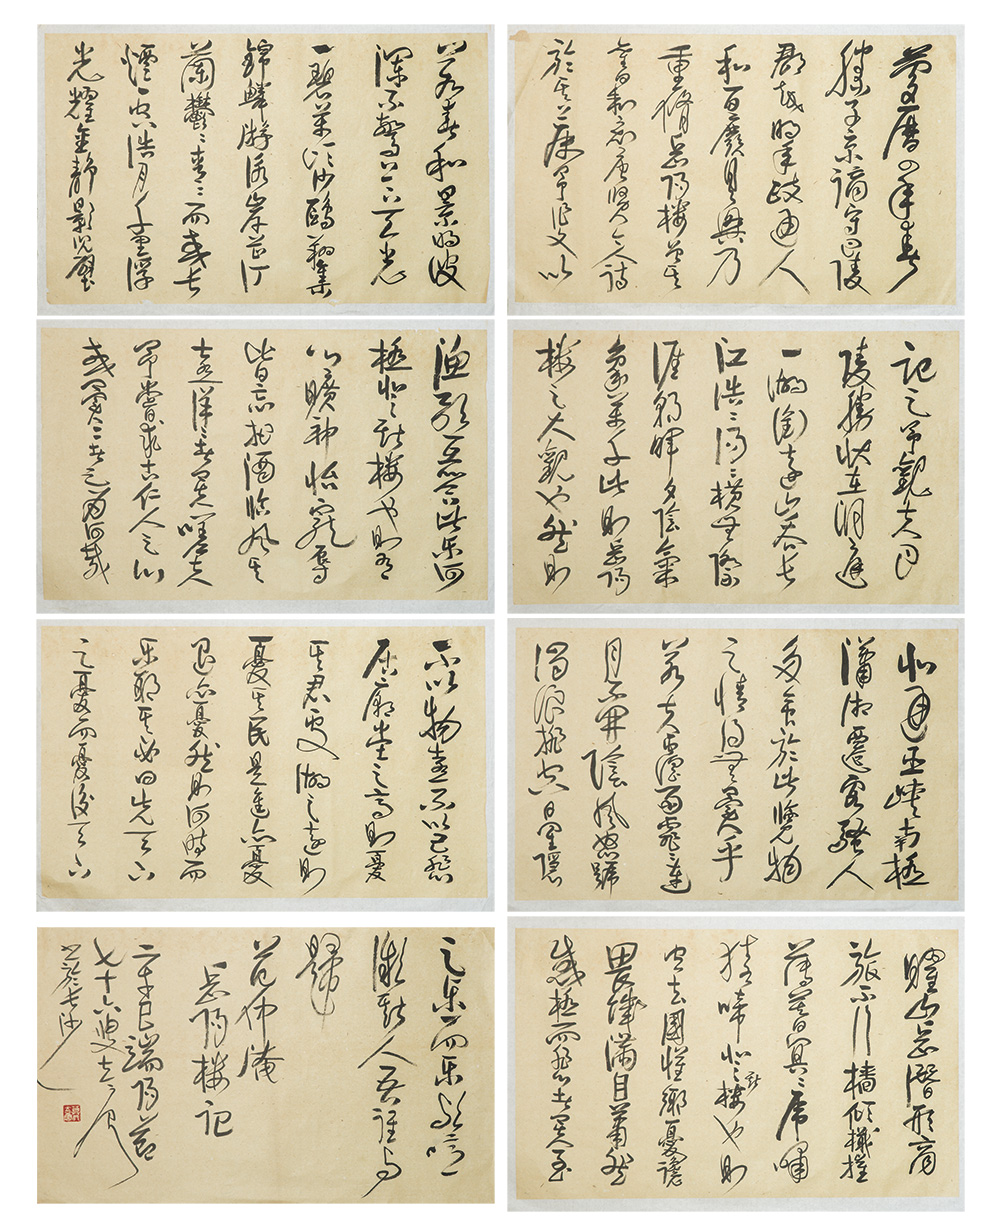 慶曆四年春
滕子京謫守巴陵
郡越明年政通人
和百廢具興乃
重脩岳陽樓增其
舊制刻唐賢今人詩
於其上屬予作文以
記之予觀夫巴
陵勝狀在洞庭
一湖銜遠山吞長
江浩浩湯湯橫無際
涯朝暉夕陰氣
象萬千此則岳陽
樓之大觀也然則
北通巫峽南極
瀟湘遷客騷人
多會於此覽物
之情得無異乎
若夫霪雨霏霏連
月不開陰風怒號
濁浪排空日星隱
曜山岳潛形商
旅不行檣傾檝摧
薄暮冥冥虎嘯
猿啼登斯樓也則
有去國懷鄉憂讒
畏譏滿目蕭然
感極而悲者矣至
若春和景明波
瀾不驚上下天光
一碧萬頃沙鷗翔集
錦鱗游泳岸芷汀
蘭鬱鬱青青而或長
煙一空浩月千里浮
光耀金靜影沉璧
漁歌互答此樂何
極登斯樓也則有
心曠神怡寵辱
皆忘把酒臨風其
喜洋洋者矣嗟夫
予嘗求古仁人之心
或異二者之為何哉
不以物喜不以己悲
居廟堂之高則憂
其君處湖之遠則
憂其民是進亦憂
退亦憂然則何時而
樂耶其必曰先天下
之憂而憂後天下
之樂而樂歟噫
微斯人吾誰與
歸
范仲淹
岳陽樓記
巳端陽節
七十六叟
書於長沙